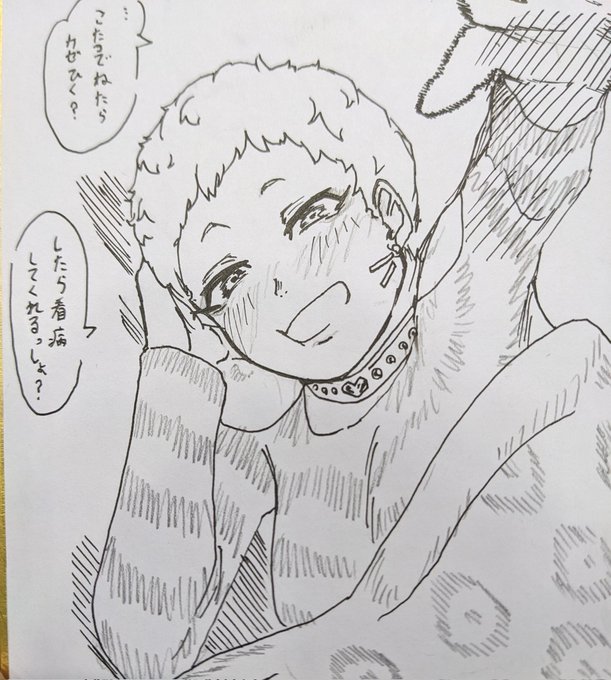 …
こたつでねたら
カゼひく?
したら看病
してくれるっしょ?